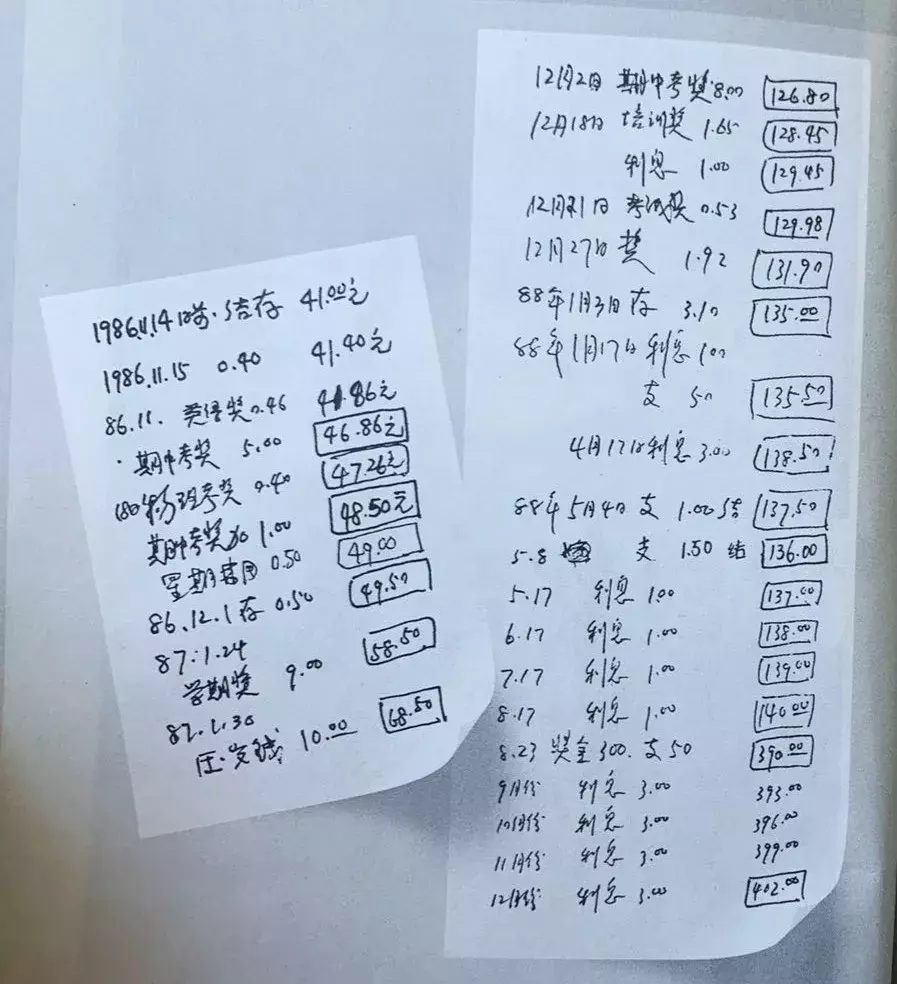 1986.11.14日前.结存 41.00元
1986.11.15 0.40 41.40元
86.11. 英语奖0.46 41.86元
期中考奖 5.00 46.86元
考奖 0.40 47.26元
期中考奖加 1.00 48.50元
星期 0.50 49.00
86.12.1存 0.50 49.50
87.1.24
学期奖 9.00 58.50
87.1.30
压岁钱 10.00 68.50
12月2日 期中考奖8.00 126.80
12月18日 培训奖 1.65 128.45
利息 1.00 129.45
12月21日 考试奖 0.53 129.98
12月27日 奖 1.92 131.90
88年1月3日存 3.10 135.00
88年1月17日利息1.00
支 50 135.50
4月17日利息3.00 138.50
88年5月4日 支 1.00结 137.50
5.8 支 1.50 结 136.00
5.17 利息 1.00 137.00
6.17 利息 1.00 138.00
7.17 利息 1.00 139.00
8.17 利息 1.00 140.00
8.23 奖金300.支50 390.00
9月份 利息 3.00 393.00
10月份 利息 3.00 396.00
11月份 利息 3.00 399.00
12月份 利息 3.00 402.00